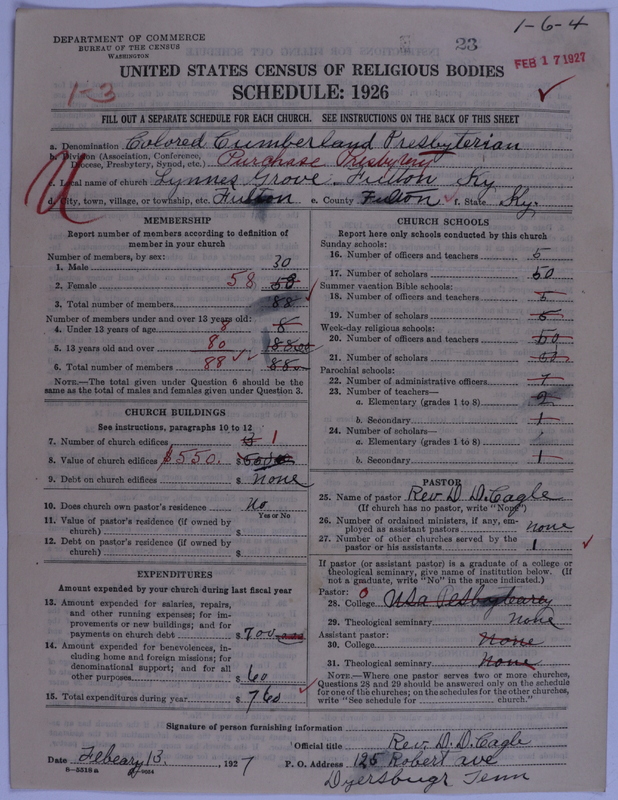 1-6-4
DEPARTMENT OF COMMERCE
BUREAU OF THE CENSUS
WASHINGTON
23
FEB 17 1927
UNITED STATES CENSUS OF RELIGIOUS BODIES
1-3
SCHEDULE: 1926
FILL OUT A SEPARATE SCHEDULE FOR EACH CHURCH. SEE INSTRUCTIONS ON THE BACK OF THIS SHEET
a. Denomination Colored Cumberland Presbyterian
b. Division (Association, Conference, Diocese, Presbytery, Synod, etc.) Purchase Presbytery
c. Local name of church Lynnes Grove Fulton Ky
d. City, town, village, or township, etc. Fulton e. County Fulton f. State Ky.
MEMBERSHIP
Report number of members according to definition of
member in your church
Number of members, by sex:
1. Male 30
2. Female 58 58
3. Total number of members 88
Number of members under and over 13 years old:
4. Under 13 years of age 8 8
5. 13 years old and over 80
6. Total number of members 88 88
NOTE.—The total given under Question 6 should be the
same as the total of males and females given under Question 3.
CHURCH BUILDINGS
See instructions, paragraphs 10 to 12
7. Number of church edifices 1
8. Value of church edifices $550. $
9. Debt on church edifices $ none
10. Does church own pastor's residence No
Yes or No
11. Value of pastor's residence (if owned by
church) $
12. Debt on pastor's residence (if owned by
church) $
EXPENDITURES
Amount expended by your church during last fiscal year
13. Amount expended for salaries, repairs,
and other running expenses; for im-
provements or new buildings; and for
payments on church debt $ 700
14. Amount expended for benevolences, in-
cluding home and foreign missions; for
denominational support; and for all
other purposes $ 60
15. Total expenditures during year $ 760
CHURCH SCHOOLS
Report here only schools conducted by this church
Sunday schools:
16. Number of officers and teachers 5
17. Number of scholars 50
Summer vacation Bible schools:
18. Number of officers and teachers 5
19. Number of scholars 5
Week-day religious schools:
20. Number of officers and teachers 50
21. Number of scholars
Parochial schools:
22. Number of administrative officers
23. Number of teachers—
a. Elementary (grades 1 to 8) 2
b. Secondary 1
24. Number of scholars—
a. Elementary (grades 1 to 8)
b. Secondary 1
PASTOR
25. Name of pastor Rev. D. D. Cagle
(If church has no pastor, write "None")
26. Number of ordained ministers, if any, em-
ployed as assistant pastors none
27. Number of other churches served by the
pastor or his assistants 1
If pastor (or assistant pastor) is a graduate of a college or
theological seminary, give name of institution below. (If
not a graduate, write "No" in the space indicated.)
Pastor:
28. College
29. Theological seminary none
Assistant pastor:
30. College None
31. Theological seminary None
NOTE.—Where one pastor serves two or more churches,
Questions 28 and 29 should be answered only on the schedule
for one of the churches; on the schedules for the other churches,
write "See schedule for church."
Signature of person furnishing information
Official title Rev. D. D. Cagle
Date Febeary 13, 1927 P. O. Address 125 Robert ave
8—5318a
Dyersbugr Tenn